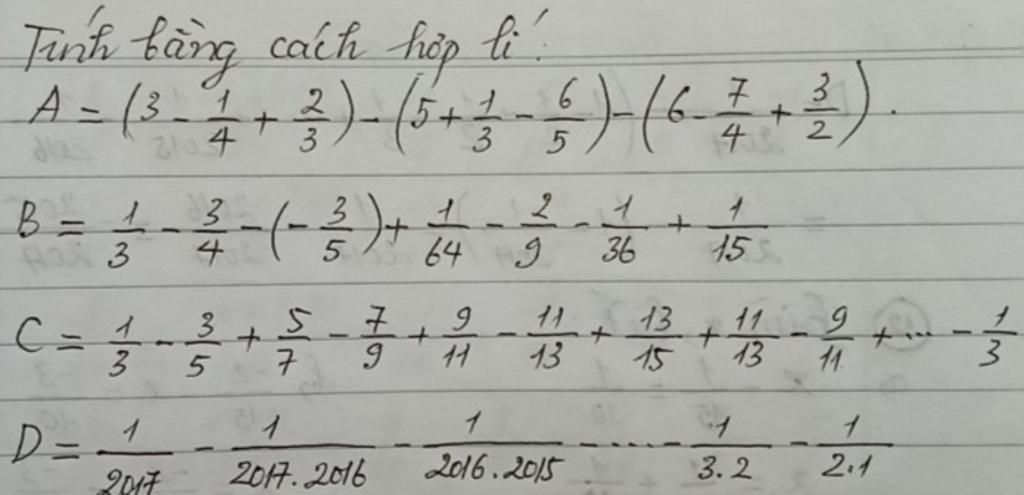 Tính bằng cách hợp lí:
A = (3 - 1/4 + 2/3) - (5 + 1/3 - 6/5) - (6 - 7/4 + 3/2).
B = 1/3 - 3/4 - (-3/5) + 1/64 - 2/9 - 1/36 + 1/15
C = 1/3 - 3/5 + 5/7 - 7/9 + 9/11 - 11/13 + 13/15 + 11/13 - 9/11 + ... - 1/3
D = 1/2017 - 1/2017.2016 - 1/2016.2015 - ... - 1/3.2 - 1/2.1